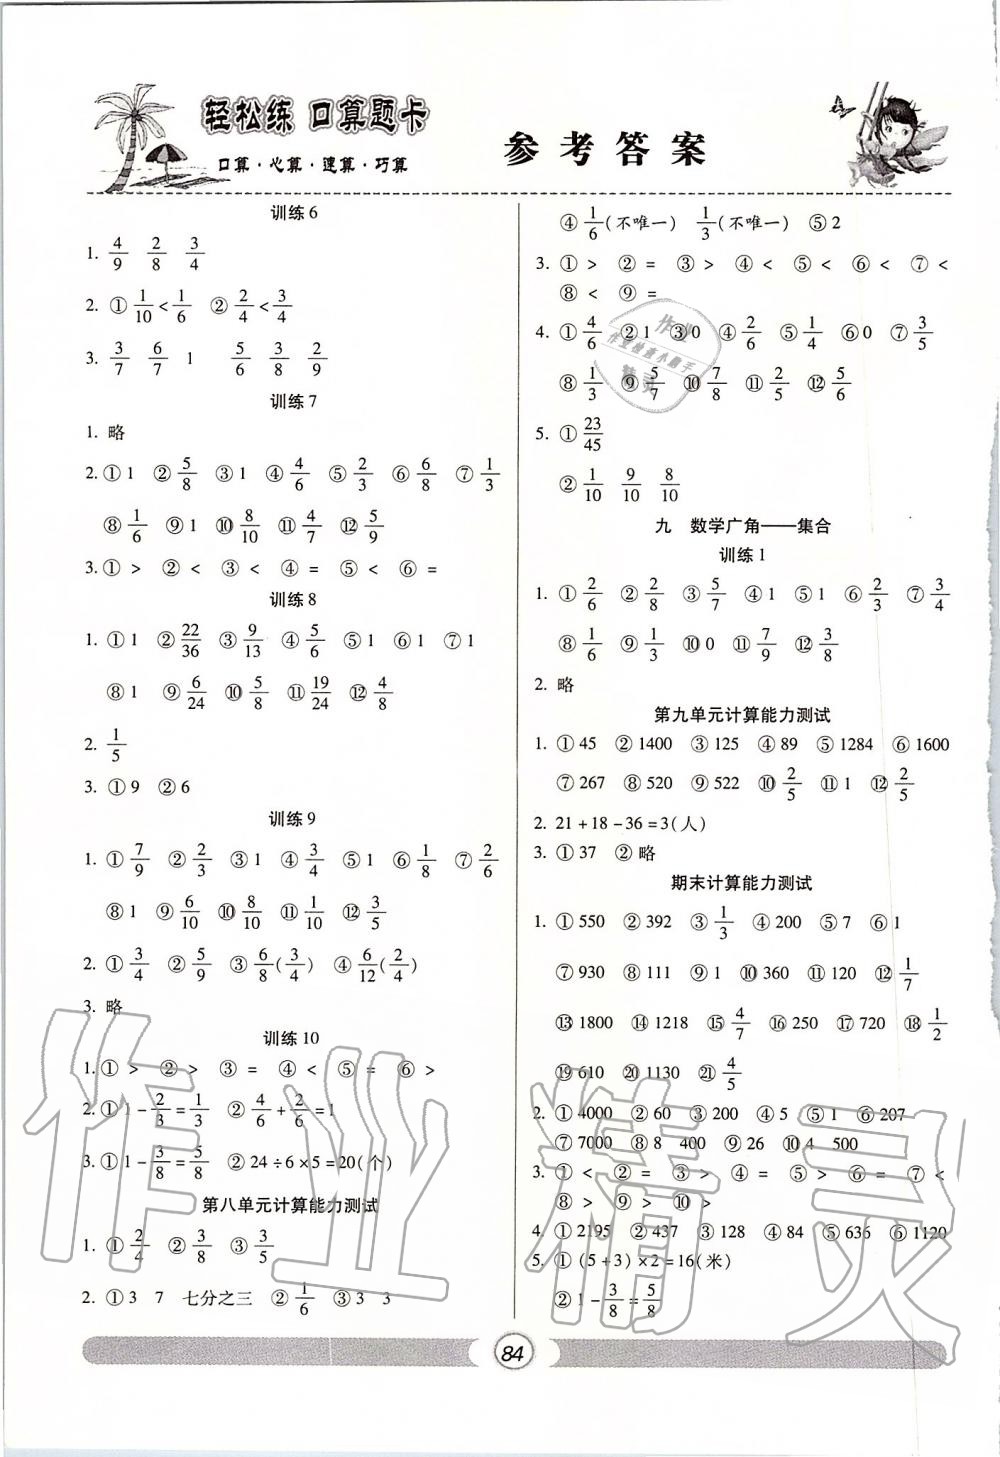 轻松练 口算题卡
口算·心算·速算·巧算
参考答案
训练6
1. 4/9 2/8 3/4
2. ①1/10<1/6 ②2/4<3/4
3. 3/7 6/7 1 5/6 3/8 2/9
训练7
1. 略
2. ①1 ②5/8 ③1 ④4/6 ⑤2/3 ⑥6/8 ⑦1/3
⑧1/6 ⑨1 ⑩8/10 ⑪4/7 ⑫5/9
3. ①> ②< ③< ④= ⑤< ⑥=
训练8
1. ①1 ②22/36 ③9/13 ④5/6 ⑤1 ⑥1 ⑦1
⑧1 ⑨6/24 ⑩5/8 ⑪19/24 ⑫4/8
2. 1/5
3. ①9 ②6
训练9
1. ①7/9 ②2/3 ③1 ④3/4 ⑤1 ⑥1/8 ⑦2/6
⑧1 ⑨6/10 ⑩8/10 ⑪1/10 ⑫3/5
2. ①3/4 ②5/9 ③6/8(3/4) ④6/12(2/4)
3. 略
训练10
1. ①> ②> ③= ④< ⑤= ⑥>
2. ①1-2/3=1/3 ②4/6+2/6=1
3. ①1-3/8=5/8 ②24÷6×5=20(个)
第八单元计算能力测试
1. ①2/4 ②3/8 ③3/5
2. ①3 7 七分之三 ②1/6 ③3 3
④1/6(不唯一) 1/3(不唯一) ⑤2
3. ①> ②= ③> ④< ⑤< ⑥< ⑦<
⑧< ⑨=
4. ①4/6 ②1 ③0 ④2/6 ⑤1/4 ⑥0 ⑦3/5
⑧1/3 ⑨5/7 ⑩7/8 ⑪2/5 ⑫5/6
5. ①23/45
②1/10 9/10 8/10
九 数学广角——集合
训练1
1. ①2/6 ②2/8 ③5/7 ④1 ⑤1 ⑥2/3 ⑦3/4
⑧1/6 ⑨1/3 ⑩0 ⑪7/9 ⑫3/8
2. 略
第九单元计算能力测试
1. ①45 ②1400 ③125 ④89 ⑤1284 ⑥1600
⑦267 ⑧520 ⑨522 ⑩2/5 ⑪1 ⑫2/5
2. 21+18-36=3(人)
3. ①37 ②略
期末计算能力测试
1. ①550 ②392 ③1/3 ④200 ⑤7 ⑥1
⑦930 ⑧111 ⑨1 ⑩360 ⑪120 ⑫1/7
⑬1800 ⑭1218 ⑮4/7 ⑯250 ⑰720 ⑱1/2
⑲610 ⑳1130 ㉑4/5
2. ①4000 ②60 ③200 ④5 ⑤1 ⑥207
⑦7000 ⑧8 400 ⑨26 ⑩4 500
3. ①< ②= ③> ④= ⑤> ⑥= ⑦<
⑧> ⑨> ⑩>
4. ①2195 ②437 ③128 ④84 ⑤636 ⑥1120
5. ①(5+3)×2=16(米)
②1-3/8=5/8
84
作业精灵